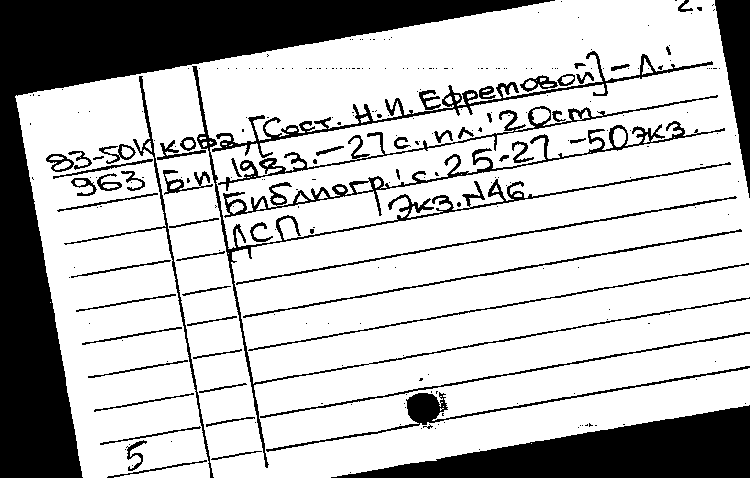 2.
83-50К кова; [Сост. Н.И. Ефремовой] – Л.:
963 Б.и., 1983. – 27 с., ил.; 20 см.
Библиогр.: с. 25-27. – 50 экз.
ДСП. | Экз. N46.
5